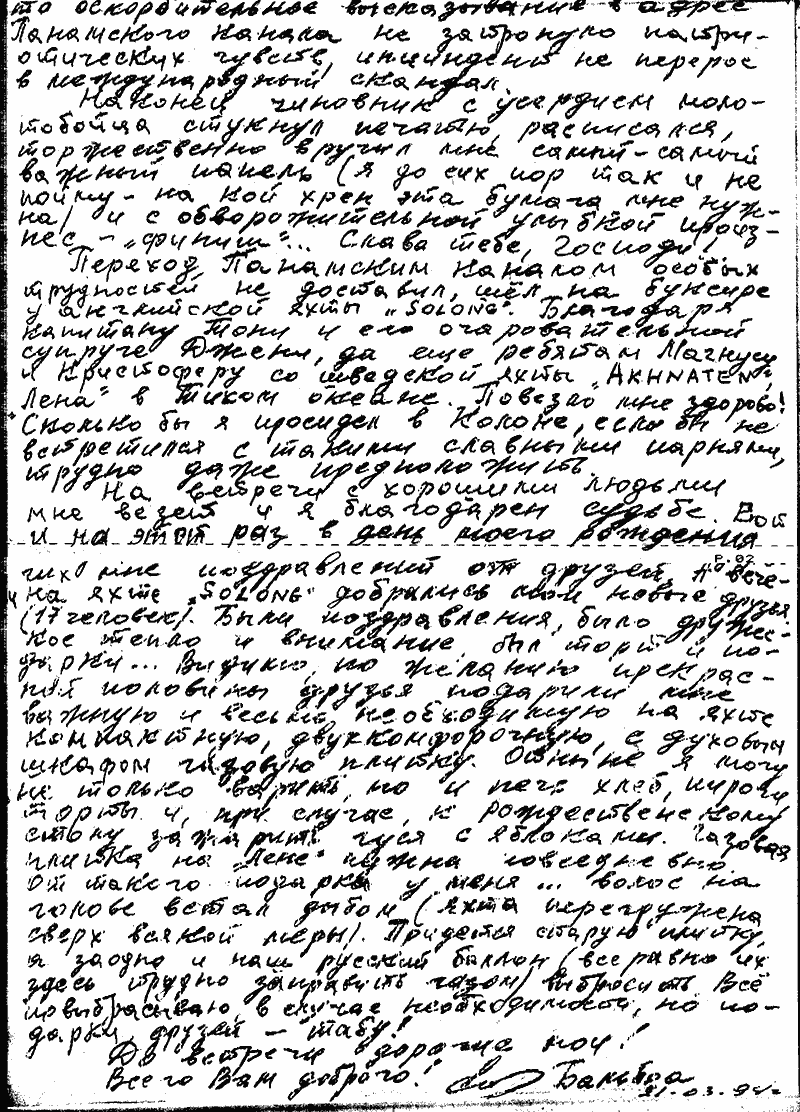 то оскорбительное высказывание в адрес
Панамского канала не затронуло патри-
отических чувств, инцидент не перерос
в международный скандал.
Наконец чиновник с усердием моло-
тобойца стукнул печатью, расписался,
торжественно вручил мне самый-самый
важный папель (я до сих пор так и не
пойму - на кой хрен эта бумага мне нуж-
на) и с обворожительной улыбкой произ-
нес - „финиш"... Слава тебе, Господи!
Переход Панамским каналом особых
трудностей не доставил, шёл на буксире
у английской яхты „SOLONG". Благодаря
капитану Тони и его очаровательной
супруге Джени, да еще ребятам Магнусу
и Кристоферу со шведской яхты „AKHNATEN",
„Лена" в Тихом океане. Повезло мне здорово!
Сколько бы я просидел в Колоне, если бы не
встретился с такими славными парнями,
трудно даже предположить.
На встречи с хорошими людьми
мне везет и я благодарен судьбе. Вот
и на этот раз в день моего рождения
мне поздравлений от друзей, А вече-
на яхте „SOLONG" добрались мои новые друзья
(17 человек). Были поздравления, было дружес-
кое тепло и внимание, был торт и по-
дарки... Видимо, по желанию прекрас-
ной половины друзья подарили мне
важную и весьма необходимую на яхте
компактную, двухкомфорочную, с духовым
шкафом газовую плитку. Отныне я могу
не только варить, но и печь хлеб, пироги
торты и, при случае, к рождественскому
столу зажарить гуся с яблоками. Газовая
плитка на „Лене" нужна повседневно
От такого подарка у меня... волос на
голове встал дыбом (яхта перегружена
сверх всякой меры). Придется старую плитку,
а заодно и наш русский баллон (все равно их
здесь трудно заправить газом) выбросить. Всё
повыбрасываю, в случае необходимости, но по-
дарки друзей - табу!
До встречи дорогие мои!
Всего Вам доброго! Бальбоа
31.03.94г